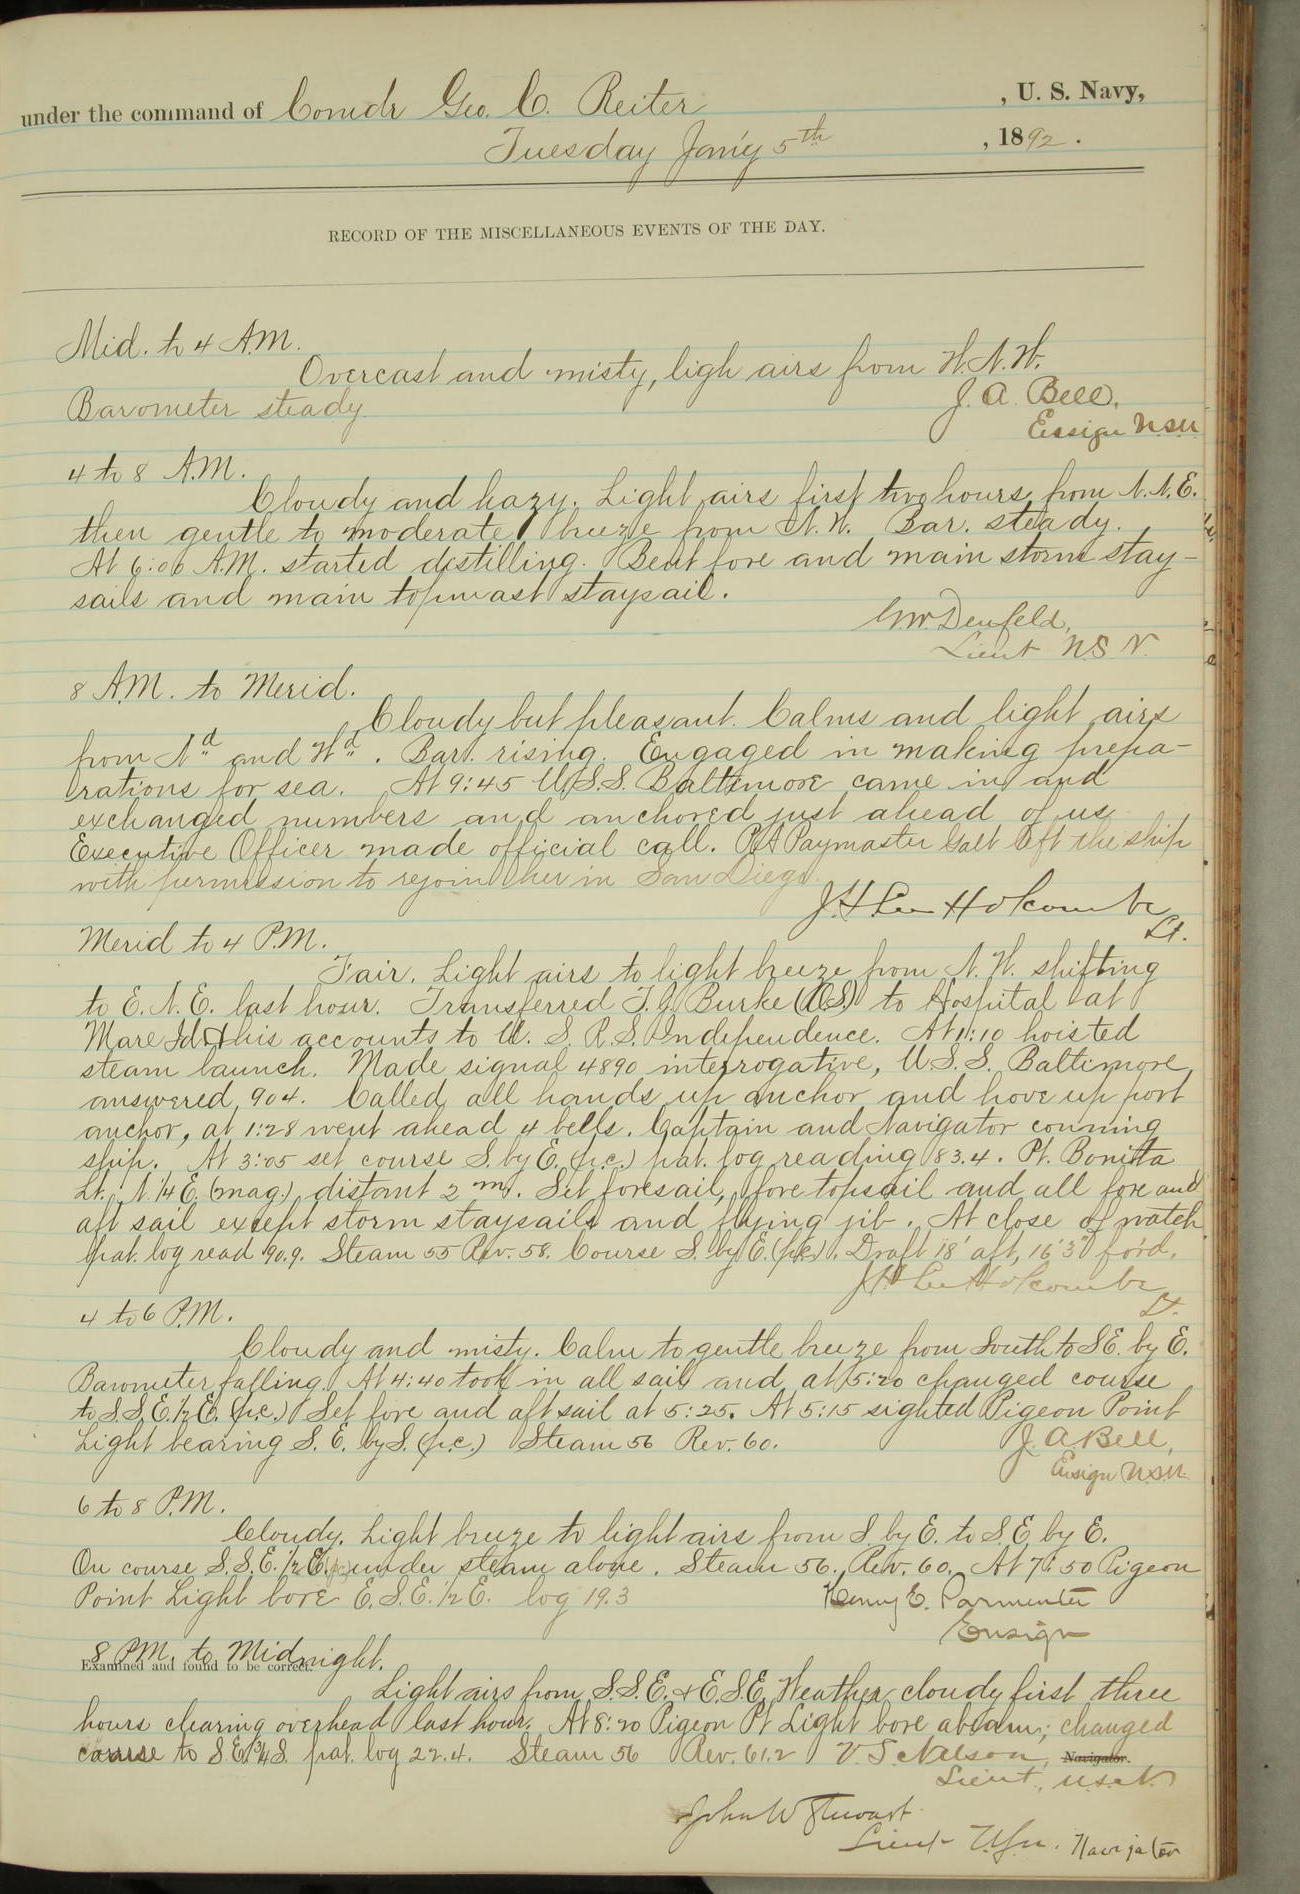 under the command of Comdr Geo. C. Reiter , U. S. Navy,
Tuesday Jan'y 5th , 1892.
RECORD OF THE MISCELLANEOUS EVENTS OF THE DAY.
Mid. to 4 A.M.
Overcast and misty, ligh airs from W.N.W.
Barometer steady.
J. A. Bell,
Ensign U.S.N.
4 to 8 A.M.
Cloudy and hazy. Light airs first two hours from N.N.E.
then gentle to moderate breeze from N.W. Bar. steady.
At 6:06 A.M. started distilling. Bent fore and main storm stay-
sails and main topmast staysail.
G.W. Denfeld,
Lieut U.S.N.
8 A.M. to Merid.
Cloudy but pleasant. Calms and light airs
from Nd and Wd. Bar. rising. Engaged in making prepa-
rations for sea. At 9:45 U.S.S. Baltimore came in and
exchanged numbers and anchored just ahead of us
Executive Officer made official call. P.A. Paymaster Galt left the ship
with permission to rejoin her in San Diego.
J.H. Lee Holcombe
Lt.
Merid to 4 P.M.
Fair. Light airs to light breeze from N.W. shifting
to E.N.E. last hour. Transferred T.J. Burke (O.S.) to Hospital at
Mare Id & his accounts to U. S. R. S. Independence. At 1:10 hoisted
steam launch. Made signal 4890 interrogative, U.S.S. Baltimore
answered, 904. Called all hands up anchor and hove up port
anchor, at 1:28 went ahead 4 bells. Captain and Navigator conning
ship. At 3:05 set course S. by E. (p.c.) pat. log reading 83.4. Pt. Bonita
Lt. N. 1/4 E. (mag.) distant 2 m. Set foresail, fore topsail and all fore and
aft sail except storm staysails and flying jib. At close of watch
pat. log read 90.9. Steam 55 Rev. 58. Course S. by E. (p.c.). Draft 18' aft, 16' 3" for'd.
J.H. Lee Holcombe
Lt.
4 to 6 P.M.
Cloudy and misty. Calm to gentle breeze from South to SE. by E.
Barometer falling. At 4:40 took in all sail and at 5:20 changed course
to S.S.E. 1/2 E. (p.c.) Set fore and aft sail at 5:25. At 5:15 sighted Pigeon Point
Light bearing S. E. by S. (p.c.) Steam 56 Rev. 60.
J. A Bell,
Ensign U.S.N.
6 to 8 P.M.
Cloudy. Light breeze to light airs from S by E. to S.E. by E.
On course S.S.E. 1/2 E. (pc) under steam alone. Steam 56. Rev. 60. At 7:50 Pigeon
Point Light bore E.S.E. 1/2 E. log 19.3
Henry E. Parmenter
Ensign
8 P.M. to Midnight.
Examined and found to be correct.
Light airs from S.S.E. & E.S.E. Weather cloudy first three
hours clearing overhead last hour. At 8:20 Pigeon Pt Light bore abeam; changed
course to S.E. 3/4 S. pat. log 22.4. Steam 56 Rev. 61.2 V. S. Nelson, Navigator.
Lieut., U.S.N.
John W Stewart
Lieut U.S.N. Navigator